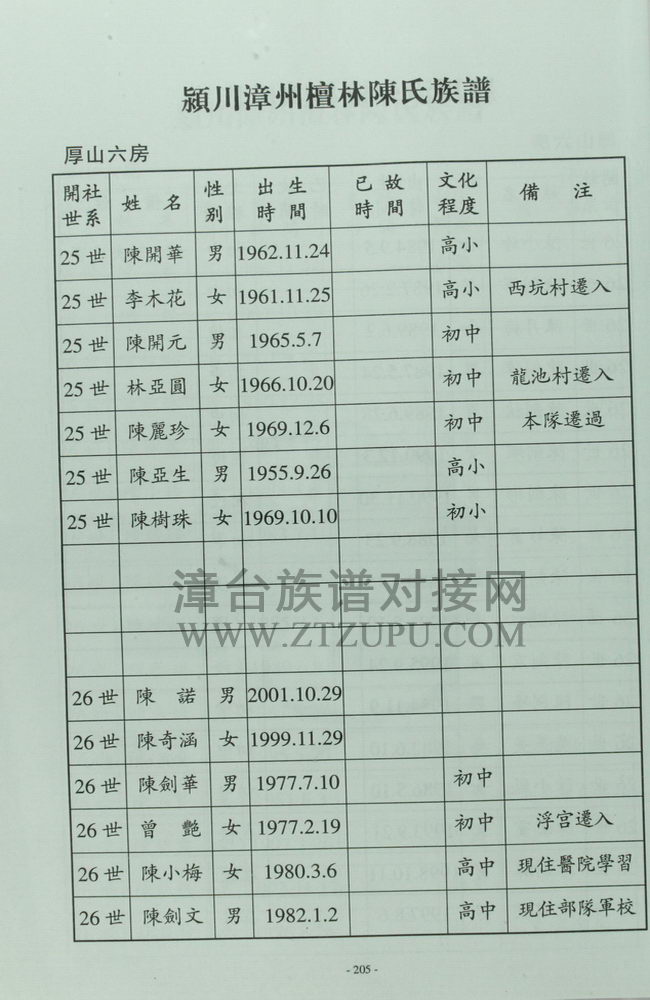 潁川漳州檀林陳氏族譜
厚山六房
開社世系 姓 名 性別 出生時間 已故時間 文化程度 備 注
25世 陳開華 男 1962.11.24 高小
25世 李木花 女 1961.11.25 高小 西坑村遷入
25世 陳開元 男 1965.5.7 初中
25世 林亞圓 女 1966.10.20 初中 龍池村遷入
25世 陳麗珍 女 1969.12.6 初中 本隊遷過
25世 陳亞生 男 1955.9.26 高小
25世 陳樹珠 女 1969.10.10 初小
漳台族谱对接网
WWW.ZTZUPU.COM
26世 陳 諾 男 2001.10.29
26世 陳奇涵 女 1999.11.29
26世 陳劍華 男 1977.7.10 初中
26世 曾 艷 女 1977.2.19 初中 浮宮遷入
26世 陳小梅 女 1980.3.6 高中 現住醫院學習
26世 陳劍文 男 1982.1.2 高中 現住部隊軍校
- 205 -